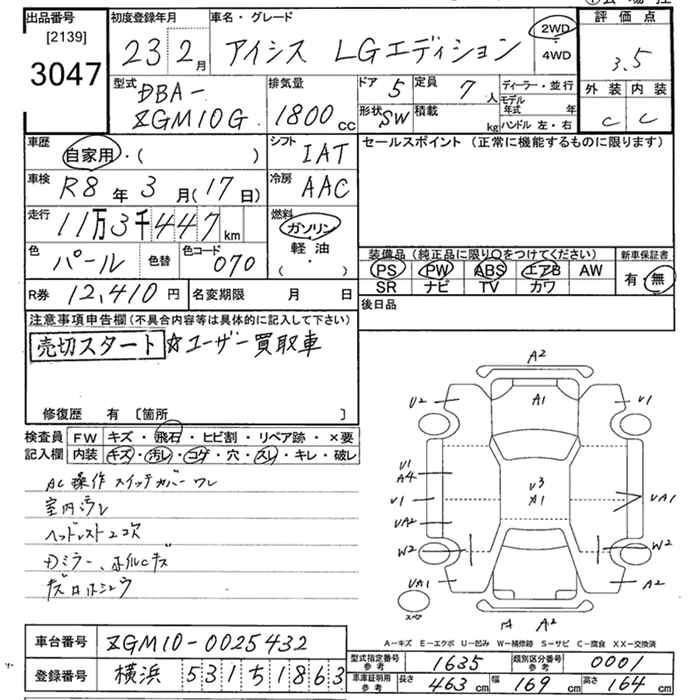 出品番号 初度登録年月 車名・グレード 評価点
[2139] 23 2月 アイシス LGエディション 2WD・4WD 3.5
3047
型式 DBA- 排気量 ドア 5 定員 7人 ディーラー・並行 外装 内装
ZGM10G 1800cc 形状 SW 積載 kg モデル年式 年 C C
ハンドル 左・右
車歴 自家用・( ) シフト IAT セールスポイント (正常に機能するものに限ります)
車検 R8年 3月(17日) 冷房 AAC
走行 11万3千447km 燃料 ガソリン
軽油
( ・ )
色 パール 色替 色コード 070 装備品 (純正品に限り○をつけてください) 新車保証書
PS PW ABS エアB AW 有・無
R券 12,410円 名変期限 月 日 SR ナビ TV カワ
後日品
注意事項申告欄(不具合内容等は具体的に記入して下さい)
売切スタート ☆ユーザー買取車
修復歴 有 [箇所 ]
検査員 FW キズ・飛石・ヒビ割・リペア跡・×要
記入欄 内装 キズ・汚レ・コゲ・穴・スレ・キレ・破レ
AC操作スイッチカバーワレ
室内汚レ
ヘッドレスト2コ欠
A2
U2 A1 U1
U1
A4 U3
U1 A1 UA1
UA2
W2 W2
UA1 A2
スペア A2
A－キズ E－エクボ U－凹み W－補修跡 S－サビ C－腐食 XX－交換済
車台番号 ZGM10-0025432
登録番号 横浜 531 5 1863
型式指定番号 参考 1635 類別区分番号 参考 0001
車庫証明用 参考 長さ 463cm 幅 169cm 高さ 164cm